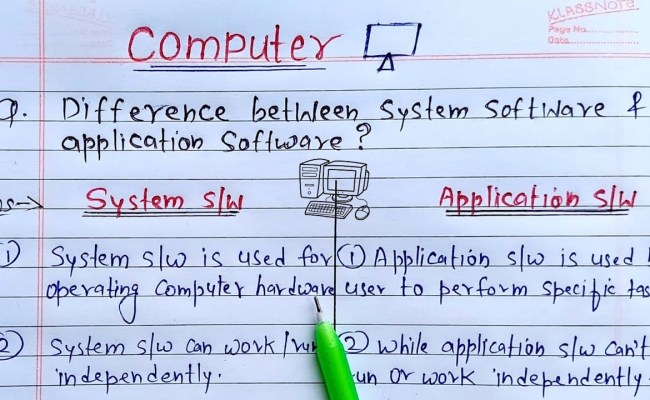 KLASSNote
Page No.
Date
Computer
Q. Difference between System Software &
application Software?
System s/w
Application s/w
① System s/w is used for
operating Computer hardware
① Application s/w is used
user to perform specific tas
② System s/w can work/run
independently.
② while application s/w can't
run or work independently.